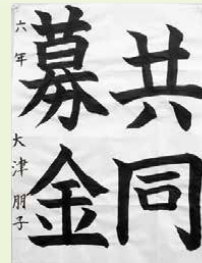 共同
募金
六年 大津朋子